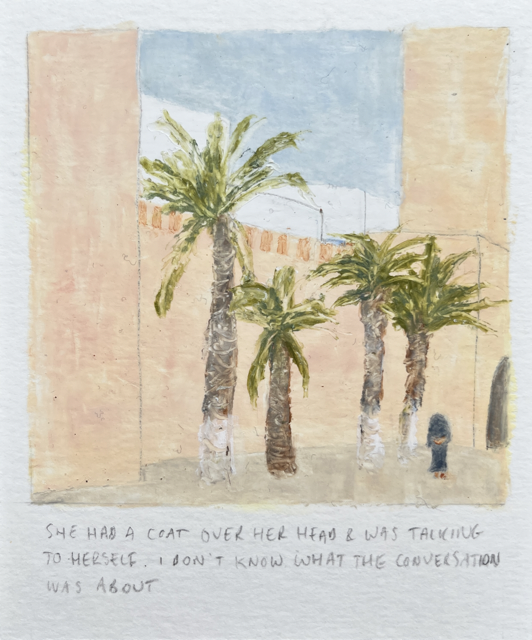 SHE HAD A COAT OVER HER HEAD & WAS TALKING
TO HERSELF. I DON'T KNOW WHAT THE CONVERSATION
WAS ABOUT